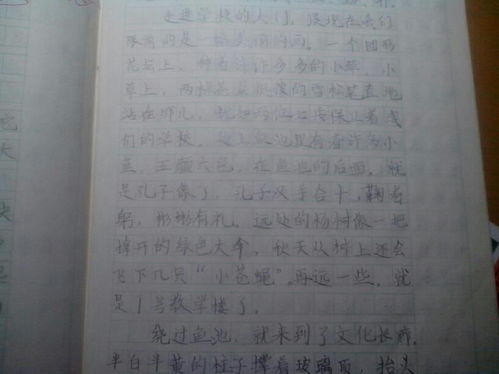 走进学校的大门,展现在我们
眼前的是一幅美丽的画。一个圆形
花坛上,种着许许多多的小草,小
草上,两棵苍翠挺拔的雪松笔直地
站在那儿,
们的学校。鱼池里有着许多小
鱼,五颜六色,在鱼池的后面,就
是孔子像了,孔子双手合十,鞠着
躬,彬彬有礼。远处的杨树像一把
撑开的绿色大伞,秋天从树上还会
飞下几只“小苍蝇”。再远一些,就
是1号教学楼了。
绕过鱼池,就来到了文化长廊,
半白半黄的柱子撑着玻璃顶,抬头